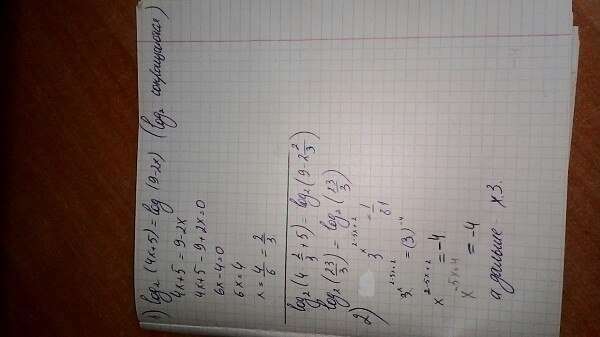 1) log₂ (4x+5) = log (9-2x) (log₂ сокращаются)
4x+5 = 9-2x
4x+5-9+2x=0
6x-4=0
6x=4
x = 4/6 = 2/3
log₂(4 2/3 +5) = log₂(9-2 2/3)
log₂(23/3) = log₂(23/3)
2) 3^x^2-5x+2 = 1/81
3^x^2-5x+2 = (3)^-4
x^2-5x+2 = -4
x^-5x+4 = -4
а дальше - х3.